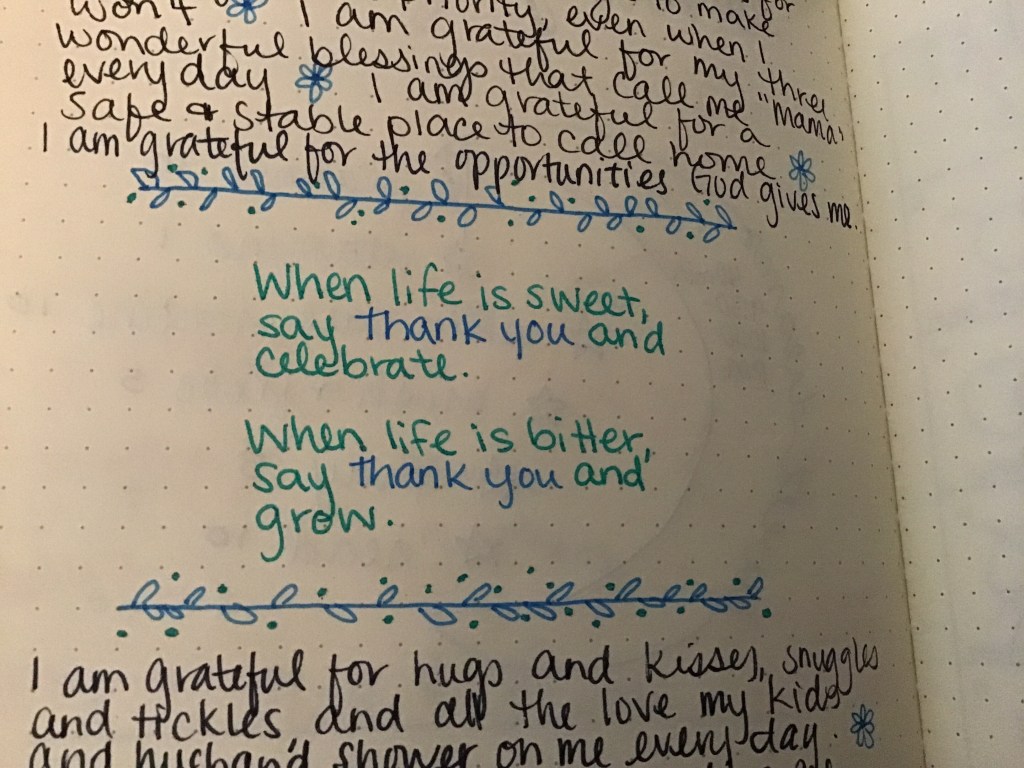 won't I am priority, even when I
to make for
I am grateful for my three
wonderful blessings that call me "mama"
every day I am grateful for a
safe & stable place to call home
I am grateful for the opportunities God gives me.
When life is sweet,
say thank you and
celebrate.
When life is bitter,
say thank you and
grow.
I am grateful for hugs and kisses, snuggles
and tickles and all the love my kids
and husband shower on me every day.